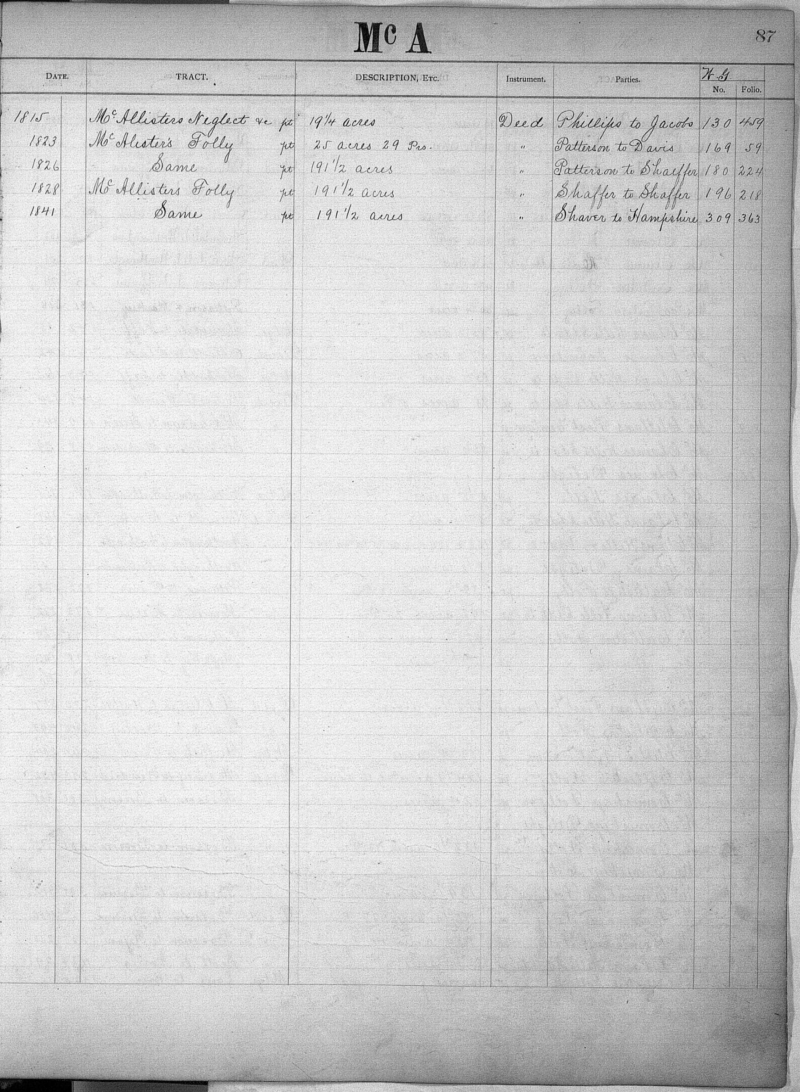 Mc A 87
DATE. TRACT. DESCRIPTION, ETC. Instrument. Parties. W G
No. Folio.
1815 McAllisters Neglect &c pt 19 1/4 acres Deed Phillips to Jacobs 130 459
1823 McAlister's Folly pt 25 acres 29 Prs. " Patterson to Davis 169 59
1826 Same pt 191 1/2 acres " Patterson to Shaeffer 180 224
1828 McAllisters Folly pt 191 1/2 acres " Shaffer to Shaffer 196 218
1841 Same pt 191 1/2 acres " Shaver to Hampshire 309 363